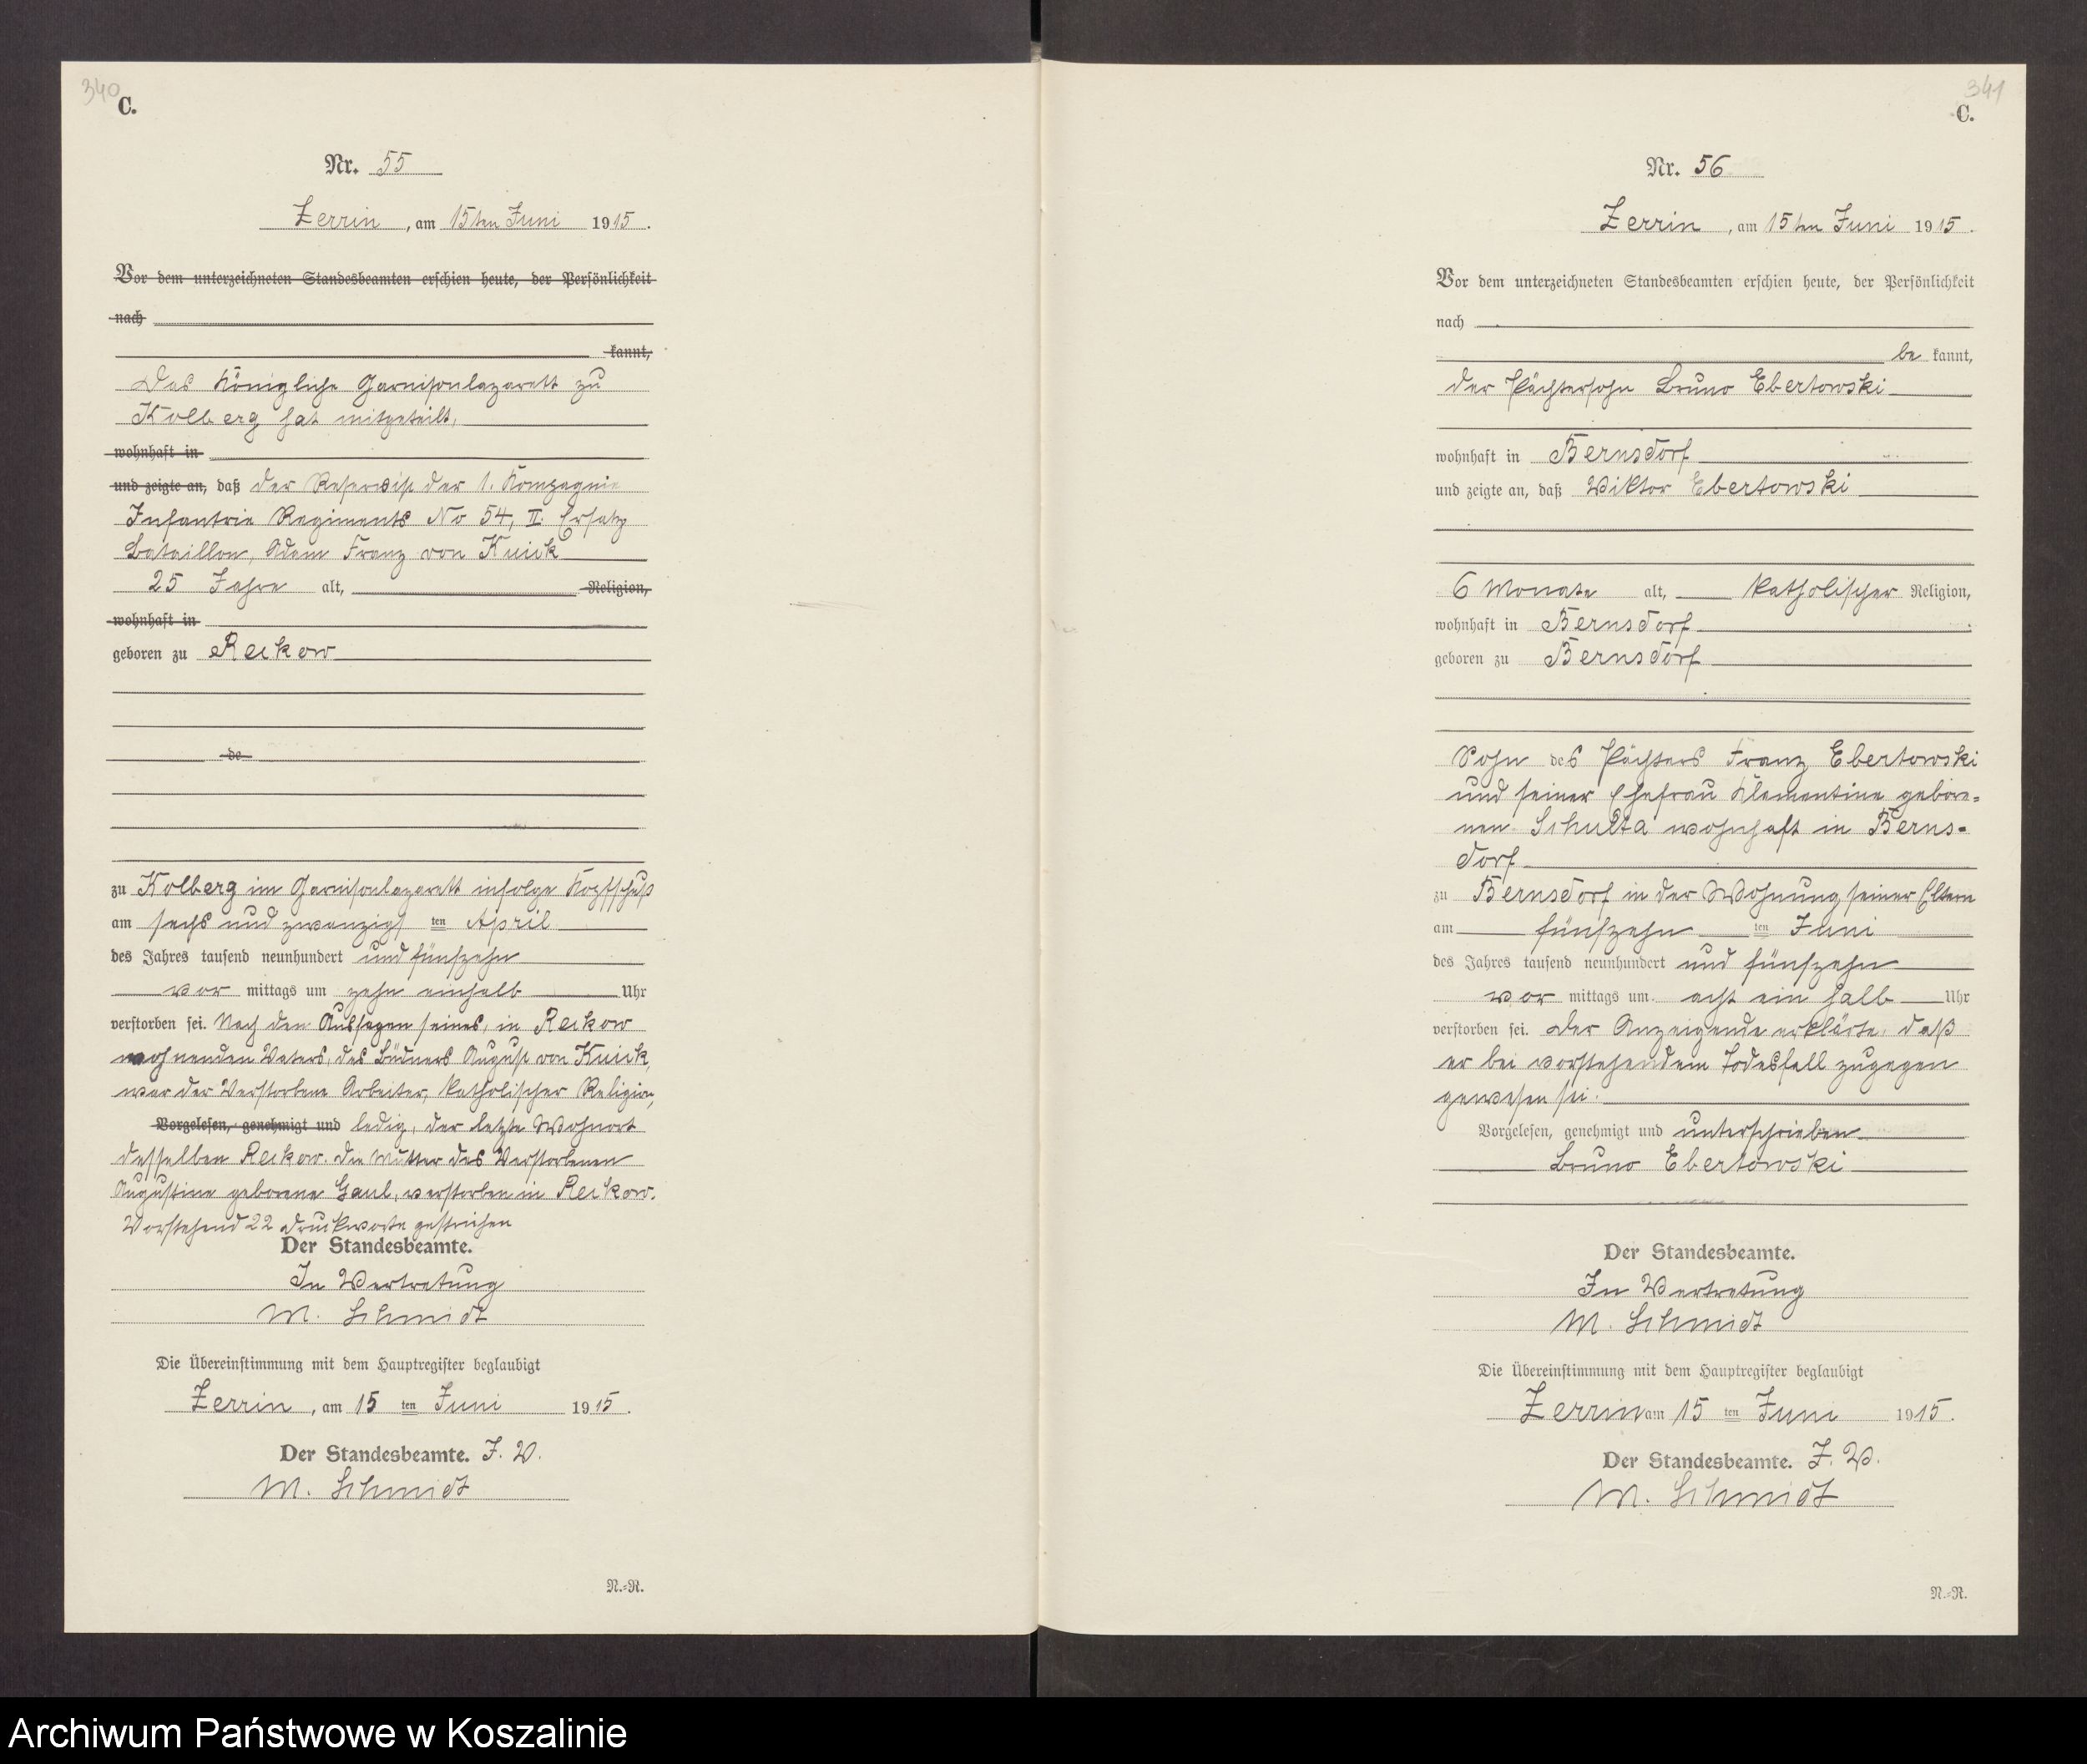 340
C.
Nr. 55
Zerrin, am 15ten Juni 1915.
Vor dem unterzeichneten Standesbeamten erschien heute, der Persönlichkeit
nach
kannt,
Das Königliche Garnisonlazarett zu
Kolberg hat mitgeteilt,
wohnhaft in
und zeigte an, daß der Reservist der 1. Kompagnie
Infantrie Regiments No 54, II. Ersatz
Bataillon, Adam Franz von Kuick
25 Jahre alt, Religion,
wohnhaft in
geboren zu Reckow
de
zu Kolberg im Garnisonlazarett infolge Kopfschuß
am sechs und zwanzigsten April
des Jahres tausend neunhundert und fünfzehn
vor mittags um zehn einhalb Uhr
verstorben sei. Nach den Aussagen seines, in Reckow
wohnenden Vaters, des Büdners August von Kuick,
war der Verstorbene Arbeiter, katholischer Religion,
Vorgelesen, genehmigt und ledig, der letzte Wohnort
desselben Reckow. Die Mutter des Verstorbenen
Augustine geborene Gaul, verstorben in Reckow.
Vorstehend 22 Druckworte gestrichen
Der Standesbeamte.
In Vertretung
M. Schmidt
Die Übereinstimmung mit dem Hauptregister beglaubigt
Zerrin, am 15 ten Juni 1915.
Der Standesbeamte. J. V.
M. Schmidt
N.-R.
341
C.
Nr. 56
Zerrin, am 15ten Juni 1915.
Vor dem unterzeichneten Standesbeamten erschien heute, der Persönlichkeit
nach
be kannt,
der Pächtersohn Bruno Ebertowski
wohnhaft in Bernsdorf
und zeigte an, daß Wiktor Ebertowski
6 Monate alt, katholischer Religion,
wohnhaft in Bernsdorf
geboren zu Bernsdorf
Sohn des Pächters Franz Ebertowski
und seiner Ehefrau Klementine gebore-
nen Schulta wohnhaft in Berns-
dorf
zu Bernsdorf in der Wohnung seiner Eltern
am fünfzehn ten Juni
des Jahres tausend neunhundert und fünfzehn
vor mittags um acht ein halb Uhr
verstorben sei. Der Anzeigende erklärte, daß
er bei vorstehendem Todesfall zugegen
gewesen sei.
Vorgelesen, genehmigt und unterschrieben
Bruno Ebertowski
Der Standesbeamte.
In Vertretung
M. Schmidt
Die Übereinstimmung mit dem Hauptregister beglaubigt
Zerrin am 15 ten Juni 1915.
Der Standesbeamte. J. V.
M. Schmidt
N.-R.
Archiwum Państwowe w Koszalinie